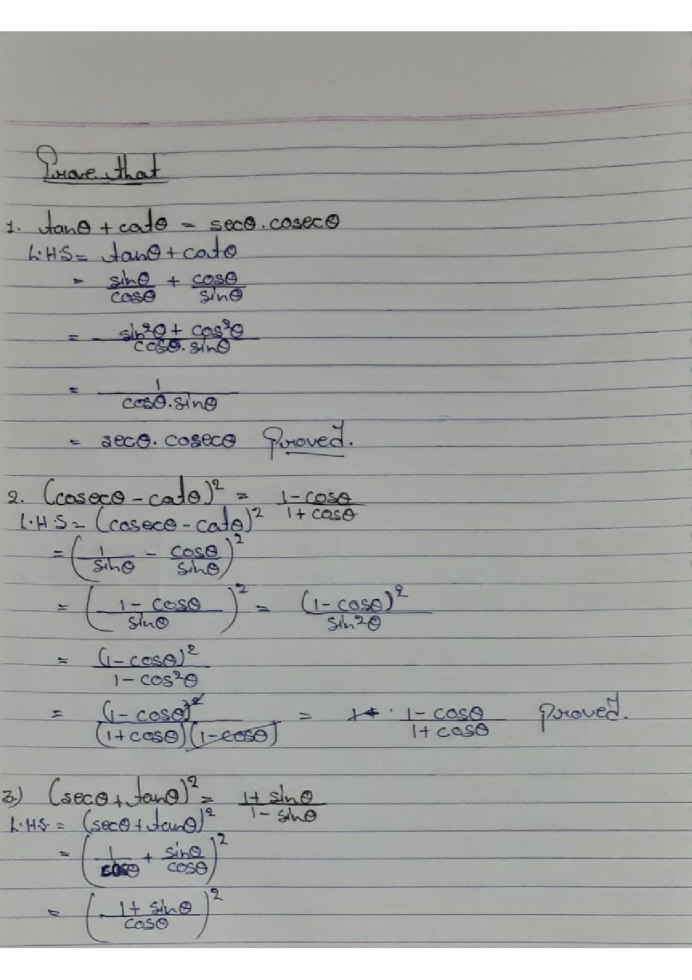 Prove that
1. tanθ + cotθ = secθ.cosecθ
L.H.S = tanθ + cotθ
= sinθ/cosθ + cosθ/sinθ
= sin²θ + cos²θ/cosθ.sinθ
= 1/cosθ.sinθ
= secθ. cosecθ Proved.
2. (cosecθ - cotθ)² = 1-cosθ/1+cosθ
L.H.S = (cosecθ - cotθ)²
= (1/sinθ - cosθ/sinθ)²
= (1-cosθ/sinθ)² = (1-cosθ)²/sin²θ
= (1-cosθ)²/1-cos²θ
= (1-cosθ)²/(1+cosθ)(1-cosθ) = 1-cosθ/1+cosθ Proved.
3) (secθ+tanθ)² = 1+sinθ/1-sinθ
L.H.S. = (secθ+tanθ)²
= (1/cosθ + sinθ/cosθ)²
= (1+sinθ/cosθ)²